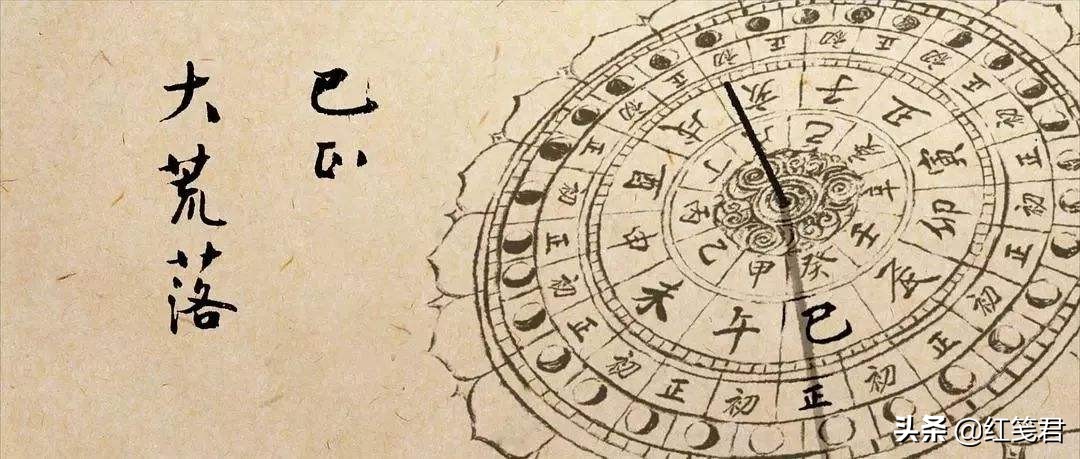 巳正
大荒落
子 丑 寅 卯 辰 巳 午 未 申 酉 戌 亥
己 辛 壬 癸 甲 乙 丙 丁
初 正 初 正 初 正 初 正 初 正 初 正 初 正 初 正 初 正 初 正
头条 @红笺君